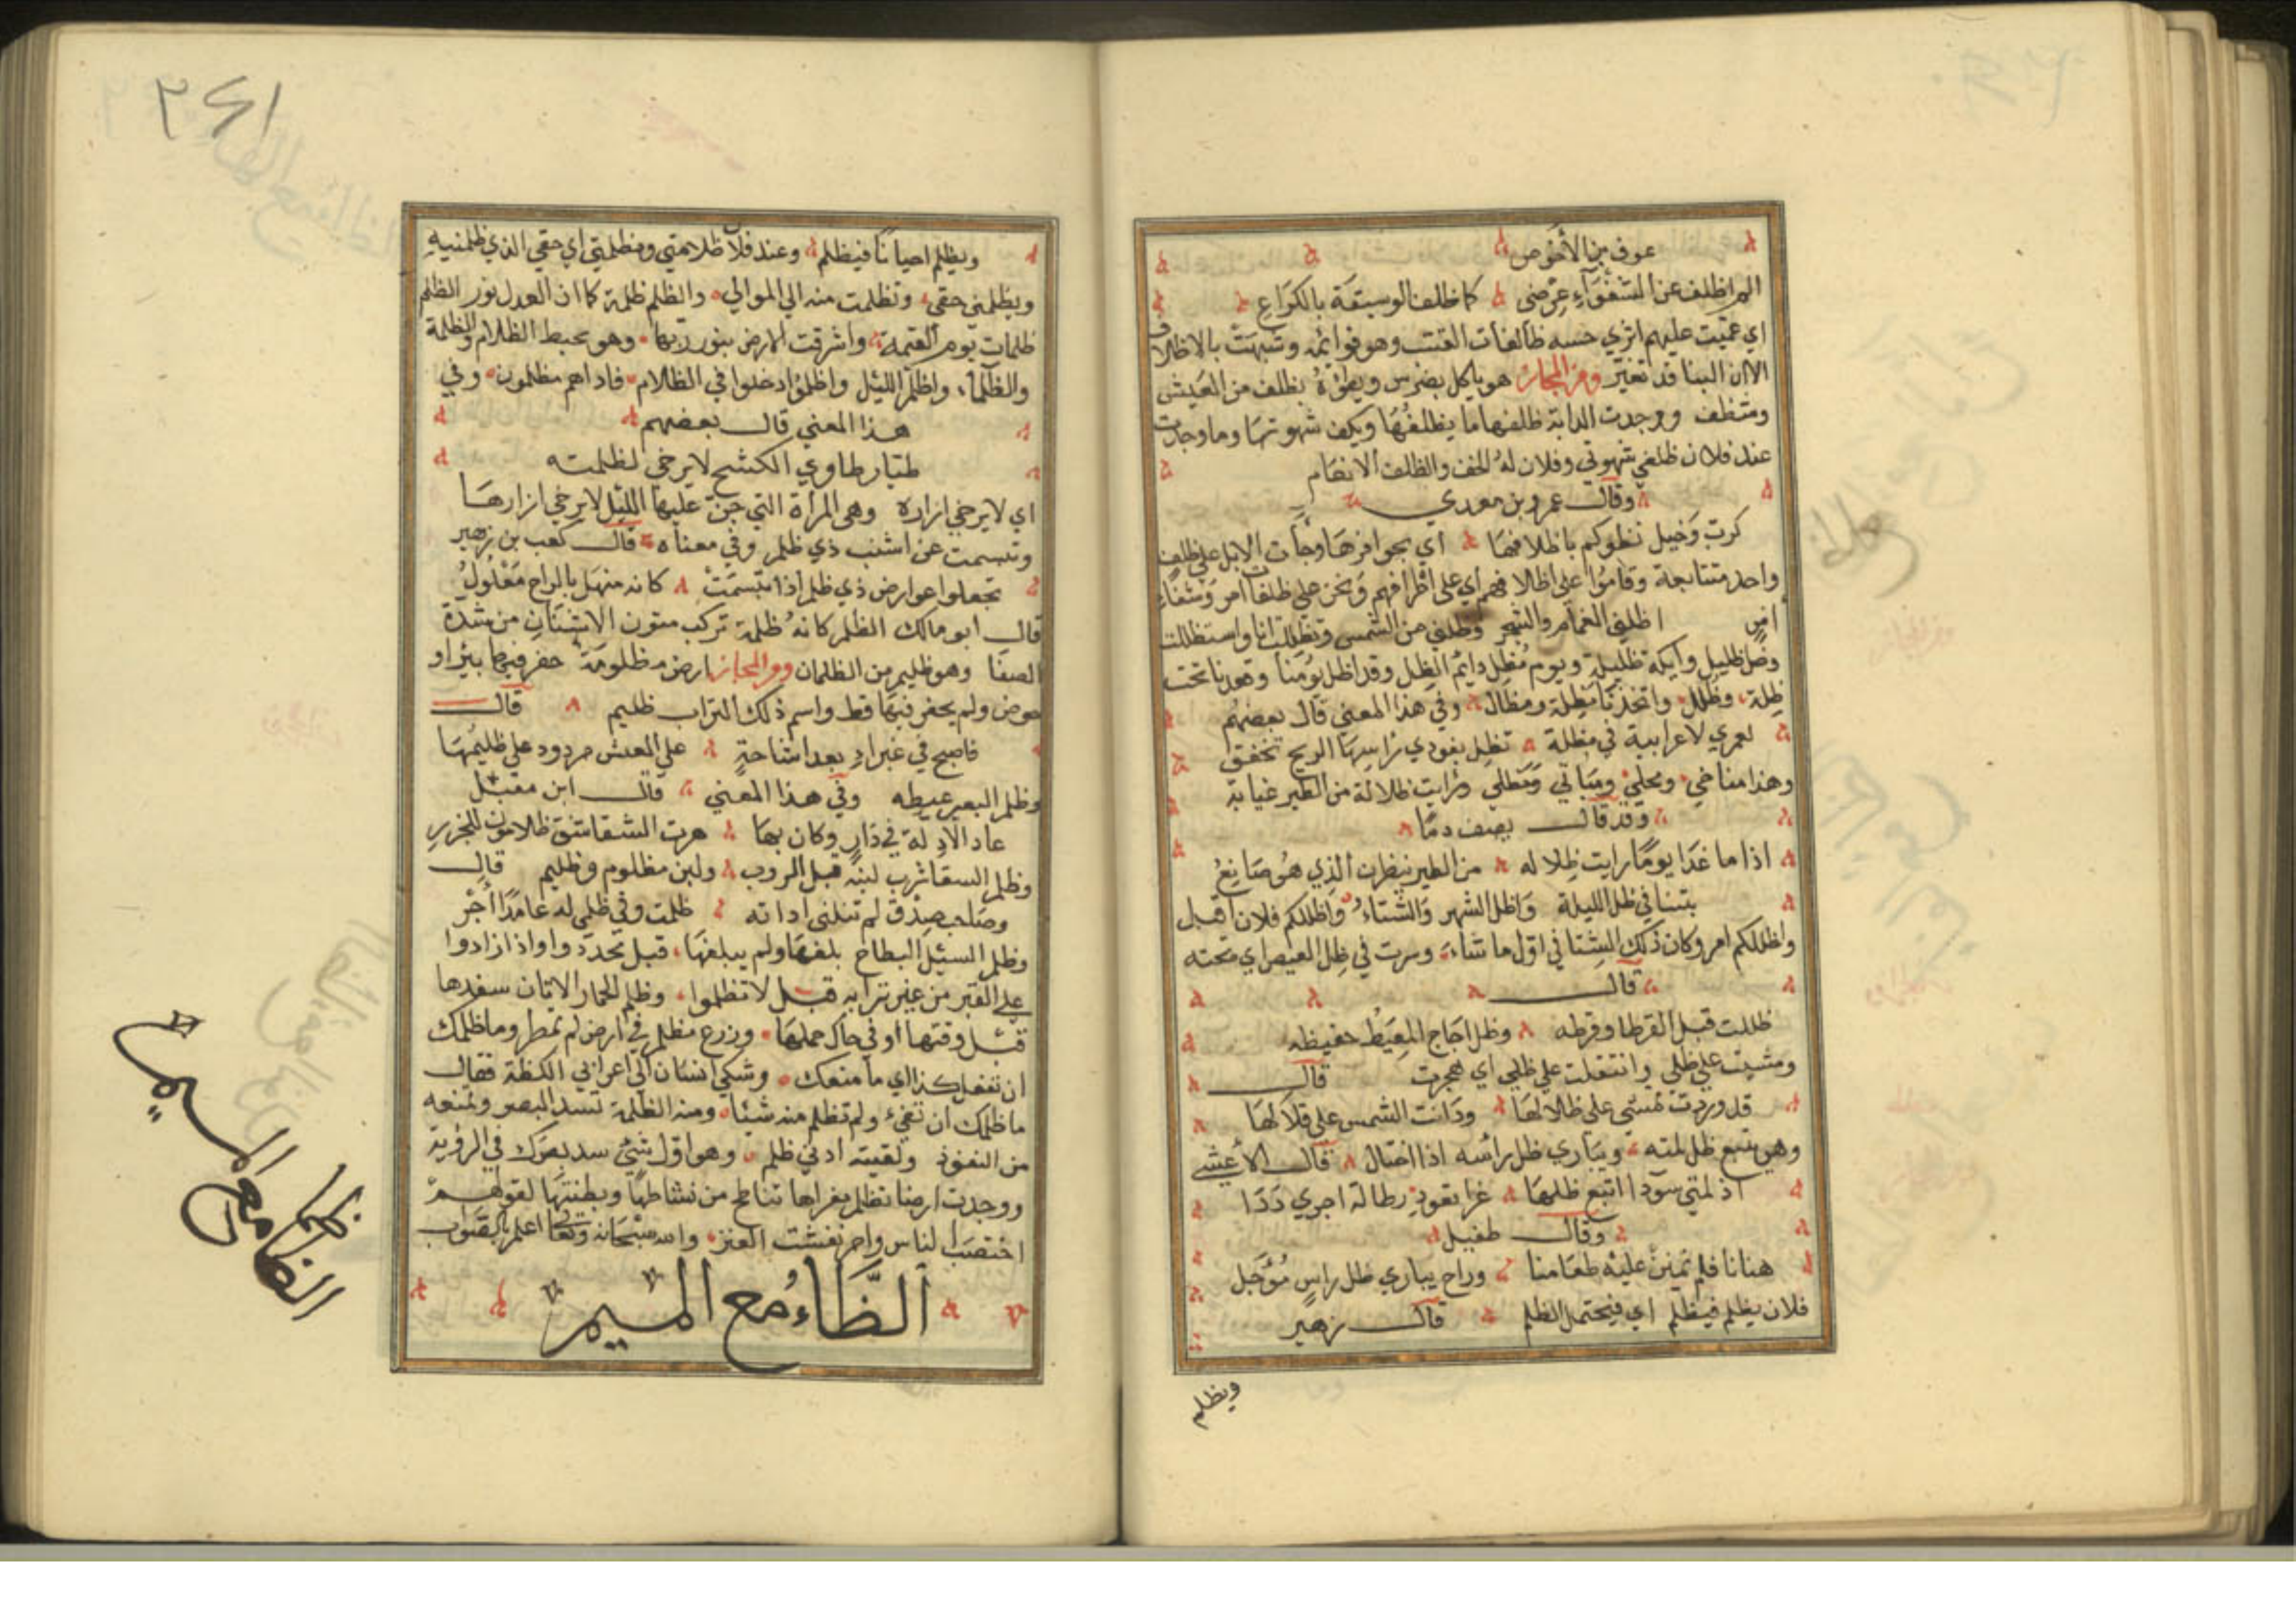 عوف بن الأحوص
الم اظلف عن الشعرآء عرضى كما ظلف الوسيقة بالكراع
اي عميت عليهم اثري حسه ظالفات القتب وهو قوائمه وشبهت بالاظلاف
الا ان البنا قد تغير ومن المجاز هو ياكل بضرس ويطؤه بظلف من العيش
وشظف ووجدت الدابة ظلفها ما يظلفها ويكف شهوتها وما وجدت
عند فلان ظلفي شهوتي وفلان له الخف والظلف الانعام
وقال عمرو بن معدي
كرب وخيل نطوكم باظلافها اي بحوافرها وجأت الابل على ظلف
واحد متتابعة وقاموا على اظلافهم اي على اطرافهم ونحن على ظلفات امر وشفاء
امر اظلني الغمام والشجر وظلني من الشمس وتظللت انا واستظللت
وظل ظليل وايكة ظليلة ويوم مظل دايم الظل وقد اظل يومنا وقعدنا تحت
ظلة وظلل واتخذنا مظلة ومظال وفي هذا المعني قال بعضهم
لعمري لاعرابية في مظلة تظل بفودي راسها الريح تخفق
وهذا مناخي ومحلي ومباتي ومظلي ورايت ظلالة من الطير غيابة
وقد قال يصف دما
اذا ما غدا يوما رايت ظلاله من الطير ينظرن الذي هو صانع
بتنا في ظل الليلة واظل الشهر والشتاء واظلكم فلان اقبل
واظلكم امر وكان ذلك الشتا في اول ما شاء وسرت في ظل العيص اي تحته
قال
ظللت قبل القرطا وفرطه وظل اجاج المعيط حفيظه
ومشيت على ظلي وانتقلت على ظلي اي هجرت قال
قد وردت تمشي على ظلالها ودانت الشمس على قلالها
وهو يتبع ظل لمته ويباري ظل رأسه اذا اختال قال الأعشى
اذ لمتي سودا اتبع ظلها غرا بعود رطالة اجري ددا
وقال طفيل
هنانا فلم نمنن عليه طعامنا وراح يباري ظل راس مؤجل
فلان يظلم فيظلم اي فيحتمل الظلم قال زهير
ويظلم
٢٤١
ويظلم احيانا فيظلم وعند فلان ظلامتي ومظلمتي اي حقي الذي ظلمنيه
ويظلمني حقي وتظلمت منه الي الموالي والظلم ظلمة كما ان العدل نور الظلم
ظلمات يوم القيمة واشرقت الارض بنور ربها وهو يحبط الظلام والظلمة
والظلماء واظلم الليل واظلموا دخلوا في الظلام فاذاهم مظلمون وفي
هذا المعني قال بعضهم
طيار طاوي الكشح لا يرخى لظلمته
اي لا يرخي ازاره وهي المرأة التي جن عليها الليل لا يرخي ازارها
وتبسمت عن اشنب ذي ظلم وفي معناه قال كعب بن زهير
تجعلوا عوارض ذي ظلم اذا ابتسمت كانه منهل بالراح معلول
قال ابو مالك الظلم كانه ظلمة تركب متون الاسنان من شدة
الصفا وهو ظليم من الظلمان ومن المجاز ارض مظلومة حفر فيها بئر او
حوض ولم يحفر فيها قط واسم ذلك التراب ظليم قال
فاصبح في غبراء بعد اشاحة على المعش مردود على ظليمها
وظلم البعير عبطه وفي هذا المعني قال ابن مقبل
عاد الاذلة في دار وكان بها هرت الشقاشق ظلامون للجزر
وظلم السقا شرب لبنه قبل الروب ولبن مظلوم وظليم قال
وصاحب صدق لم تنلني اداته ظلمت وفي ظلمي له عامدا أجر
وظلم السيل البطاح بلغها ولم يبلغها قبل تحددوا واذا زادوا
علي القبر من غير ترابه قيل لا تظلموا وظلم الحمار الاتان سفدها
قبل وقتها او في حال حملها وزرع مظلم في ارض لم تمطر وما ظلمك
ان تفعل كذا اي ما منعك وشكي انسان الي اعرابي الكظة فقال
ما ظلمك ان تقيء ولم تظلم منه شيئا ومنه الظلمة تسد البصر وتمنعه
من النفوذ ولقيته ادني ظلم وهو اول شيء سد بصرك في الرؤية
ووجدت ارضا تظالم مغراها تناطح من نشاطها وبطنتها لقولهم
اخصب الناس واحرنفشت العنز والله سبحانه وتعالى اعلم بالصواب
الظاء مع الميم
الظاء مع الميم